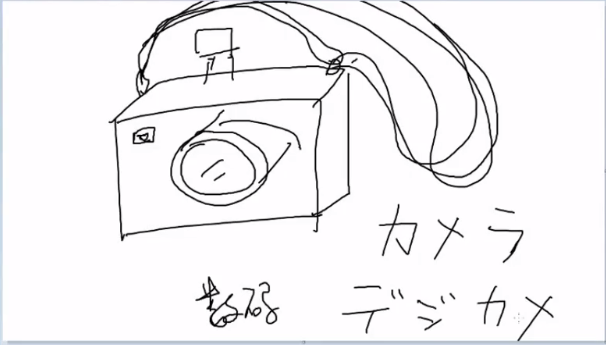 カメラ
数码 デジカメ